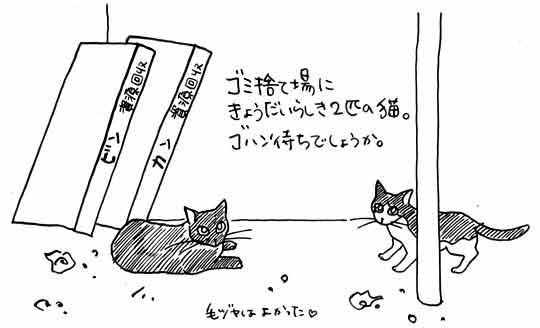 資源回収
ビン
資源回収
カン
ゴミ捨て場に
きょうだいらしき2匹の猫。
ゴハン待ちでしょうか。
毛ヅヤはよかった♡